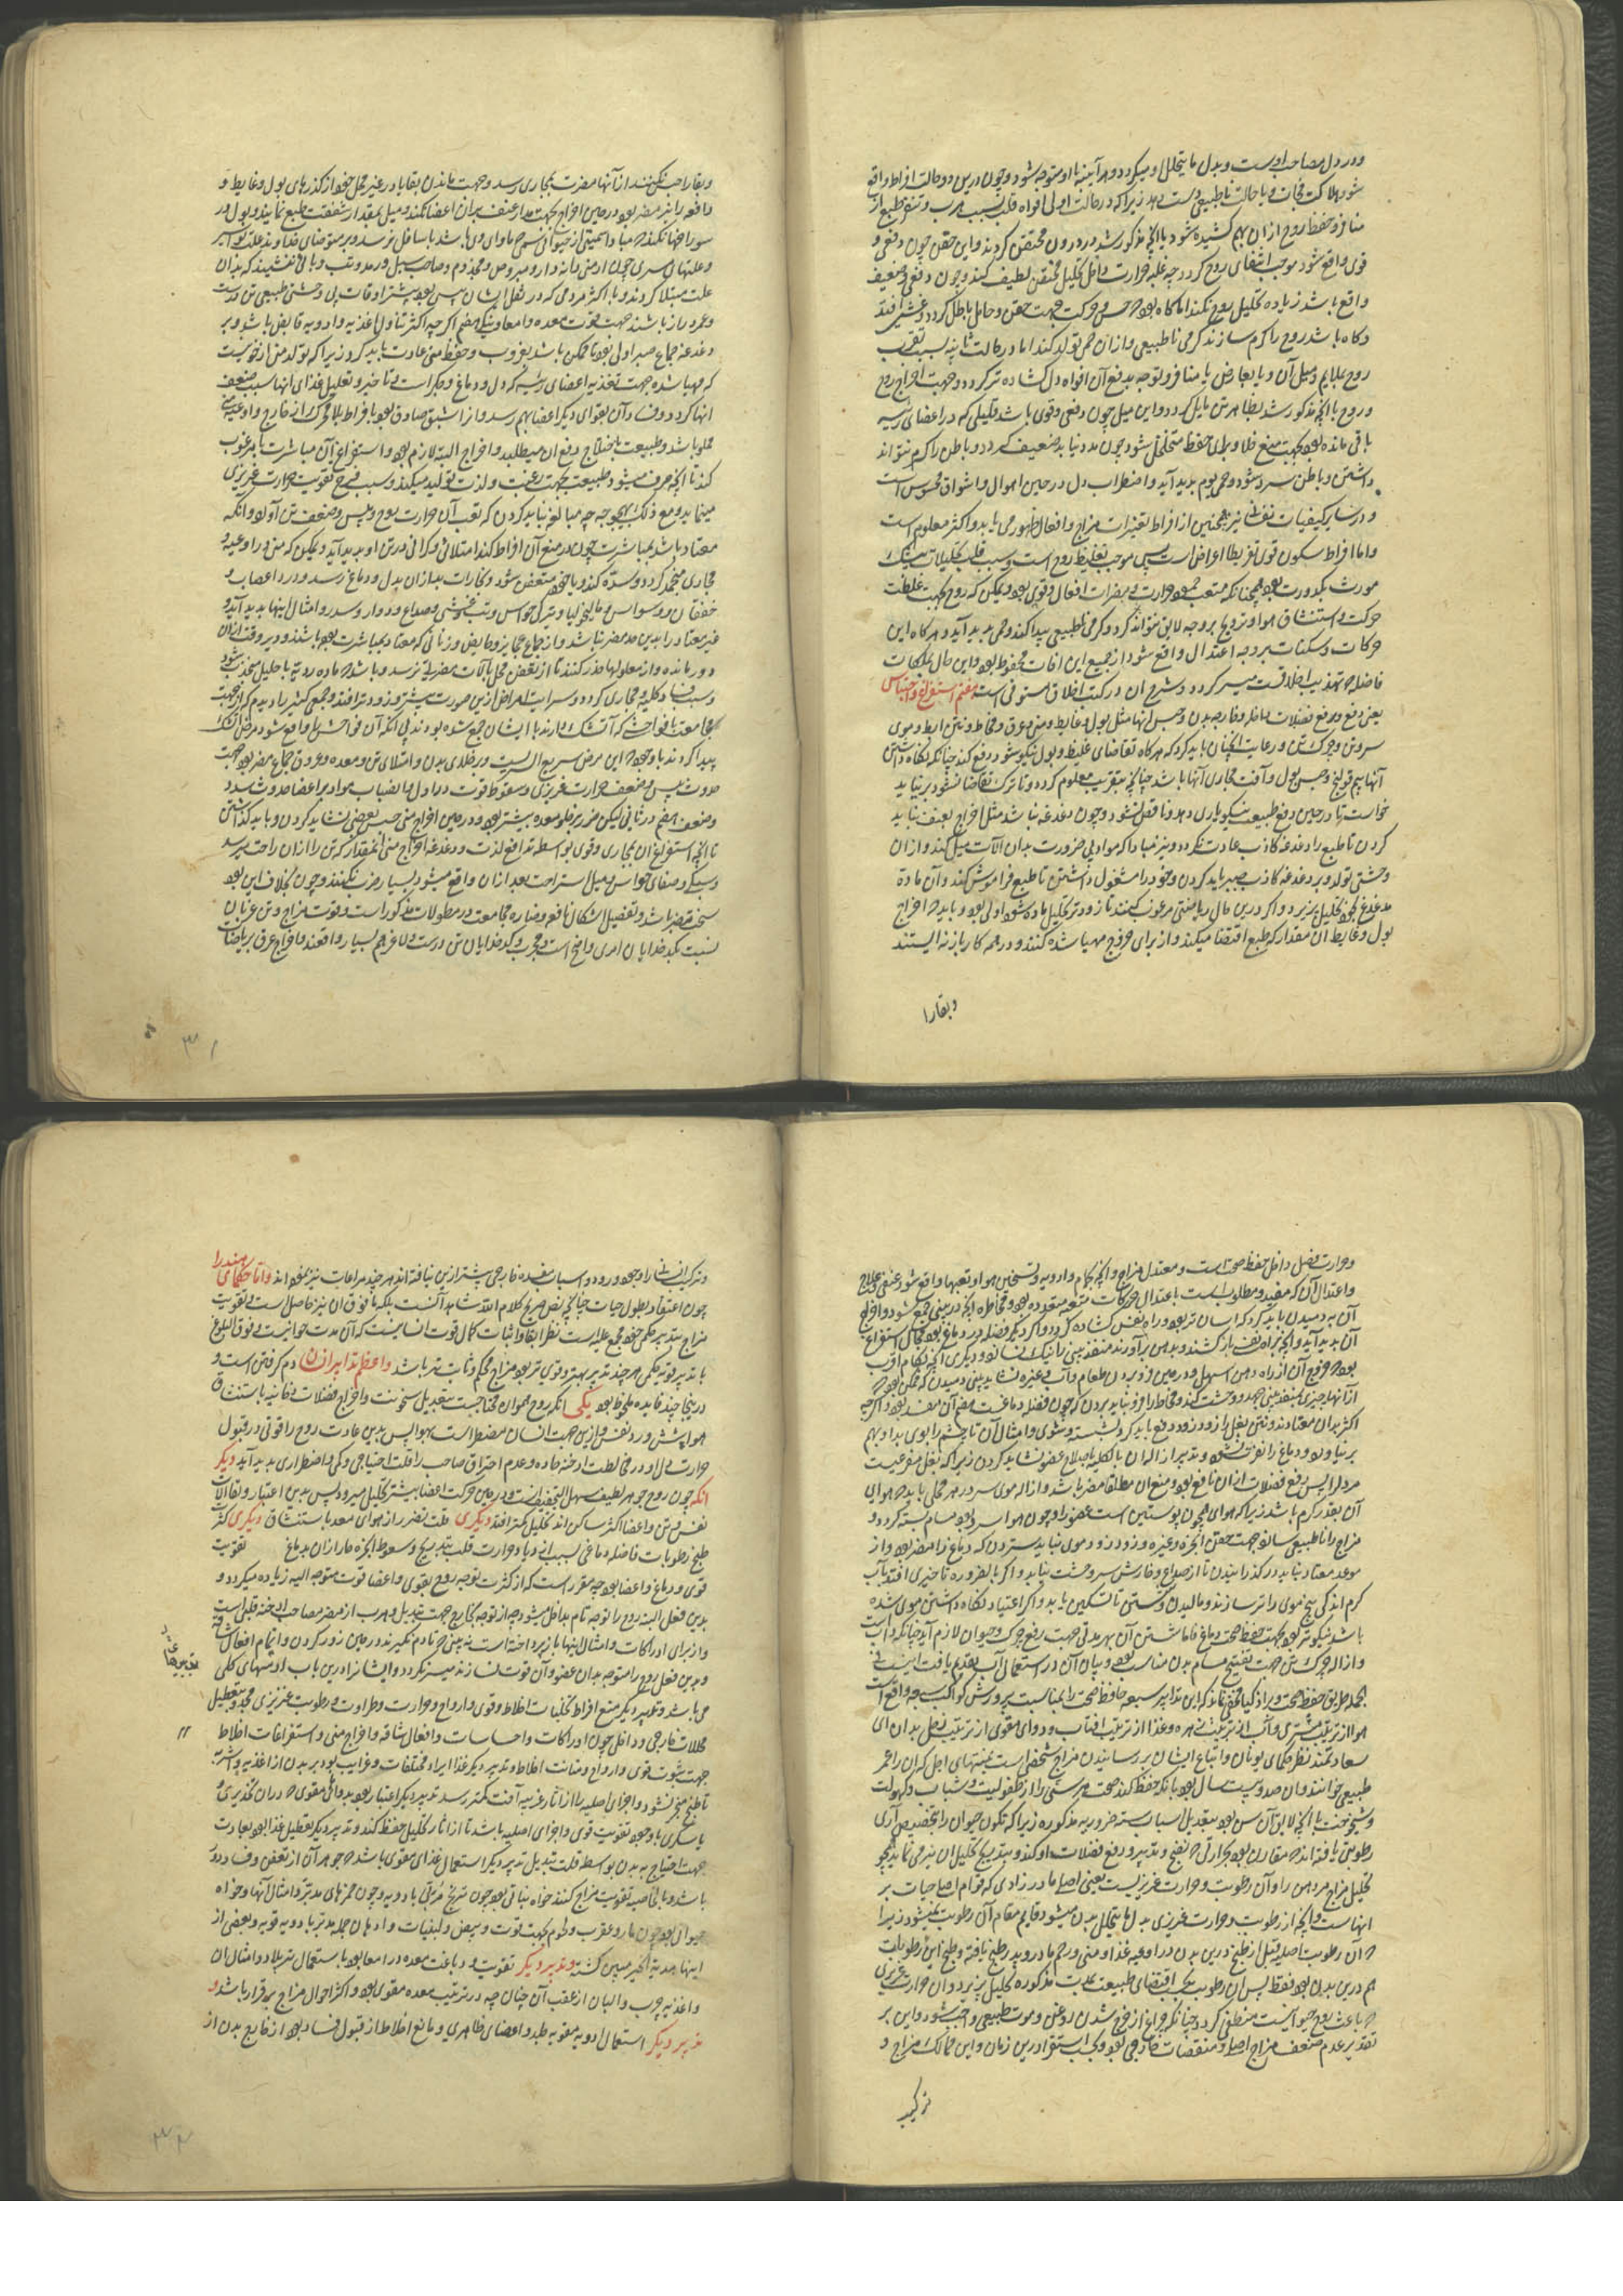 ودر دل مصاحب اوست وبدل ما یتحلل او میکردد وهر آینه با او متوجه شود وچون درین دو حالت افراط واقع
شود هلاکت فجات ویا حالت ناطبیعی دست دهد زیرا که در حالت اولی افواه قلب بسبب هرب وتنفر طبع از
منافر وحفظ روح از ان بهم کشیده شود با انچه مذکور شد در درون محتقن کردند واین حقن چون دفعی و
قوی واقع شود موجب انطفای روح کردد چه غلبه حرارت داخل تحلیل محتقن لطیف کند وچون دفعی وضعیف
واقع باشد زیاده تحلیل روح نکند اما کاه بود که حس وحرکت بجهت حقن وحامل باطل کردد وغشی افتد
وکاه باشد روح را کرم سازند کرمی ناطبیعی واز ان حمی تولد کند اما در حالت ثانیه بسبب تقرب
روح بملایم ومیل آن ویا بعارض یا منافر وتوجه بدفع آن افواه دل کشاده تر کردد وجهت اخراج روح
وروح با انچه مذکور شد بظاهر تن مایل کردد واین میل چون دفعی وقوی باشد قلیلی که در اعضای رئیسه
باقی مانده بود بجهت منع خلا وبرای حفظ متخلخل شود چون مدد نیابد ضعیف کردد وباطن را کرم نتواند
داشتن وباطن سرد شود وحمی یوم پدید آید واضطراب دل در حین اهوال واشواق محسوس است
ودر سایر کیفیات نفسانی نیز همچنین از افراط تغیرات مزاج وافعال ظهور می یابد واکثر معلوم است
واما افراط سکون قوی تفریط اعراض است پس موجب تغلیظ روح است وسبب قلت تحلیلات بیشک
مورث کدورت بود همچنانکه متعب جمود حرارت ومضرات افعال وقوی بود ویمکن که روح بجهت غلظت
حرکت واستنشاق هوا وترویح بر وجه لایق نتواند کرد وکرمی ناطبیعی پیدا کند وحمی پدید آید وهر کاه این
حرکات وسکنات بر وجه اعتدال واقع شود از جمیع این افات محفوظ بود واین حال بملکات
فاضله وتهذیب اخلاق میسر کردد وشرح ان در کتب اخلاق مستوفی است هفتم استفراغ واحتباس
یعنی دفع ورفع فضلات داخله وخارجه بدن وحبس انها مثل بول وغایط ومنی وعرق ومخاط ونتن ابط وموی
سر وتن وچرک تن ورعایت انچنان باید کرد که هر کاه تقاضای غلیظ وبول نیکو شود دفع کند چنانکه نکاه داشتن
آنها بیم قولنج وحبس بول وآفت مجاری آنها باشد چنانچه بتقریب معلوم کردد وتا ترک تقاضا نشود بر نباید
خواست تا در حین دفع طبیعت نیکو یاری دهد وناقص نشود وچون دغدغه نباشد مثل اخراج بعنف نباید
کردن تا طبع را دغدغه کاذب عادت نکردد ونیز مبادا که مواد بی ضرورت بدان الآت میل کند واز ان
وحشتی تولد وبر دغدغه کاذب صبر باید کردن وخود را مشغول داشتن تا طبع فراموش کند وآن مادۀ
مدغدغ بخود تحلیل پذیرد واکر درین حال ریاضتی مرغوب کنند تا زودتر تحلیل ماده شود اولی بود وباید که اخراج
بول وغایط آن مقدار که طبع اقتضا میکند واز برای خروج مهیا شده کنند ودر همه کار باز نه ایستند
وبقارا
وبقا را حبس نکنند از آنها مضرت بمجاری رسد وجهت ماندن بقایا در غیر محل خود از کذرهای بول وغایط و
دافعه را نیز مضر بود ودر حین اخراج بجهت مدار عنف بر ان اعضا نکنند ومیل بمقدار شفقت طبع نمایند وبول در
سوراخها نکنند مبادا سمیتی از حیوانی سمی که ماوای وی باشد باسافل نرسد وبر موضعای خداوند علت بواسیر
وعلتهای مسری چون ارمنی دانه دار ومبروص ومجذوم وصاحب سبل ورمد وتب وبائی ننشینند که بدان
علت مبتلا کردند وبا اکثر مردمی که در ثفل ایشان پیس بود بیشتر اوقات بی وحشتی طبیعی تن درست
وعمر دراز باشند جهت قوت معده وامعا ونیکی هضم اکر چه اکثر تناول اغذیه وادویه قابض باشد وبر
دغدغه جماع صبر اولی بود تا ممکن باشد بغروب وحفظ منی عادت باید کرد زیرا که تولد منی از خونیست
که مهیا شده جهت تغذیه اعضای رئیسه که دل ودماغ وجکر است وتاخیر وتعلیل غذای انها سبب ضعف
انها کردد وفساد آن بقوای دیکر اعضا بهم رسد واز اشبق صادق بود با فراط بلا محرک از خارج واوعیه منی
مملو باشد وطبیعت باختلاج دفع ان میطلبد واخراج البته لازم بود واستفراغ آن مباشرت با مرغوب
کند تا انچه صرف میشود طبیعت بجهت رغبت ولذت تولید میکند وسبب فرح تقویت حرارت غریزی
مینماید ومع ذلک بهیچ وجه چه مبالغه نباید کردن که تعب آن حرارت روح ویبس وضعف تن آورد وانکه
معتاد باشد بمباشرت چون در منع آن افراط کند امتلائی وکرانی در تن او پدید آید ویمکن که منی در اوعیه و
مجاری منجمد کردد وسده کند ویا خود متعفن شود وبخارات بد از ان بدل ودماغ رسد ودرد اعصاب و
خفقان ووسواس ومالیخولیا وتیرکی حواس وتب وغشی وصداع ودوار وسدر وامثال اینها پدید آید و
غیر معتاد را بدین حد مضر نباشد واز جماع عجایز وحایض وزنانی که معتاد بمباشرت بود باشند ودیر وقت از ان
دور مانده واز معلولها حذر کنند تا از تعفن محل بآلات مضرتی نرسد وباشد که ماده ردیه باحلیل منجذب شود
وسبب فساد کلیه ومجاری کردد وسرایت امراض ازین صورت بیشتر وزودتر افتد وجمعی کثیر را دیدم که از جهت
مجامعت بفواحشی که آتشک دارند یا ایشان جمع شده بودند بی انکه آن فواحش را واقع شود مرض اتشک
پیدا کردند با وجود که این مرض سریع السریت ودر خلای بدن وامتلای تن ومعده وعروق جماع مضر بود جهت
حدوث یبس وضعف حرارت غریزی وسقوط قوت در اول وانصباب مواد بر اعضا وحدوث سدد
وضعف هضم در ثانی لیکن ضرر بر خلو معده بیشتر بود ودر حین اخراج منی حبس بعضی نشاید کردن وباید کذاشتن
تا انچه استفراغ ان بمجاری وقوی بواسطه تدافع لذت ودغدغه اخراج منی آنمقدار که تن را از ان راحت رسد
وسبکی وصفای حواس ومیل استراحت بعد از ان واقع میشود بسیار ضرب نکنند وچون بخلاف این بود
سخت مضر باشد وتفصیل اشکال نافع وضاره مجامعت در مطولات مذکور است وقوت مزاج وتن عزبان
نسبت بکدخدایان امری واضح است ومجرب وکدخدایان تن درست ولاغر هم بسیار واقعند واخراج عرق بریاضات
۳۱
وحرارت فصل داخل حفظ صحت است ومعتدل مزاج وانچه بحمام وادویه وتسخین هوا وتعبها واقع شود عنفی وعلاج
واعتدال آن که مفید ومطلوبست باعتدال حرکات متعبه معدوده بود ومخاطره انچه در بینی جمع شود واخراج
آن به دمیدن باید کرد که اسان تر بود وراه نفس کشاده کردد واکر دیکر فضله در دماغ بود بحال استفراغ
آن پدید آید وانچه براه نفس باز کشند وبدهن برآورند منفذ بینی را نیک نشانو ودیکری انکه بکام اقرب
بود که خروج آن از راه دهن اسهل ودر حین فرو بردن طعام وآب وغیره نشاید بینی دمیدن که ممکن بود که
از آنها چیزی بمنفذ بینی جهد ووحشت کند ومخاط را فرو نباید بردن که چون فضله دماغست هضم آن مفسد بود واکر چه
اکثر بدان معتادند ونتن بغل را زود زود دفع باید کرد بشستن وشوی وامثال آن تا چشم را بوی بد او بهم
بر نیاورد ودماغ را نفرت نشود وتدبیر ازاله ان بالکلیه باصلاح عضو نشاید کردن زیرا که بغل مفرغیست
مر دل را پس دفع فضلات از ان نافع بود ومنع ان مطلقا مضر باشد وازاله موی سر در هر محلی باید که هوای
آن بقدر کرم باشد زیرا که هوای همچون پوستین است عضو را وچون هوا سرد بود مسام بسته کردد و
مزاج را ناطبیعی سازد جهت حقن ابخره وغیره وزود زود موی نباید ستردن که دماغ را مضر بود واز
موعد معتاد نباید در کذرانیدن تا از صداع وخارش سر وحشت نیابد واکر بالضروره تاخیری افتد بآب
کرم اندکی بیخ موی را تر سازند ومالیدن وشستن تا تسکین یابد واکر اعتیاد نکاه داشتن موی شده
باشد نیکوتر بود بجهت حفظ صحت دماغ فاما شستن آن بهر مدتی جهت رفع چرک وحیوان لازم آید چنانکه دانسته است
وازاله چرک تن جهت تفتیح مسام بدن مناسب بود وبیان آن در استعمال آب تقدیم یافت اینست
مجمل طریق حفظ صحت وبر اذکیا مخفی نماند که این تدابیر سبعه حافظ صحت را بمناسبت پرورش کواکب سبعه واقع است
هوا از تربیت مشتری وآب از تربیت زهره وغذا از تربیت افتاب ودوای مقوی از تربیت زحل بدان ای
سعادتمند نظر حکمای یونان واتباع ایشان بر رسانیدن مزاج شخصی است بمنتهای اجل که ان را عمر
طبیعی خوانند وان صد وبیست سال بود بانکه حفظ کند صحت هر سنی را از طفولیت وشباب وکهولت
وشیخوخت با انچه لایق آن سن بود بتعدیل اسباب سته ضروریه مذکوره زیرا که تکون حیوان را بتخصیص آدمی
رطوبتی یافته اند که مقارن بود بحرارتی که نضج وتدبیر ودفع فضلات او کند وبتدریج تحلیل ان نیز می نماید همچو
تحلیل مزاج مر دهن را وآن رطوبت وحرارت غریزیست یعنی اصلی مادرزادی که قوام اصل حیات بر
انهاست وانچه از رطوبت وحرارت غریزی بدل ما یتحلل بدن میشود قایم مقام آن رطوبت نمیشود زیرا
که آن رطوبت اصلیه قبل از طبخ درین بدن در اوعیه غذا ومنی ورحم مادر وپدر طبخ یافته وطبخ این رطوبات
هم درین بدن بود فقط پس ان رطوبت بحسب اقتضای طبیعت بمدت مذکوره تحلیل پذیرد وان حرارت غریزی
که باعث بود حیوانیت منطفی کردد چنانکه چراغ از خرج شدن روغن وموت طبیعی واجب شود واین بر
تقدیر عدم ضعف مزاج اصلی ومنقصات خارجی بود وبحسب استقرا درین زمان واین ممالک مزاج و
ترکیب
وترکیب انسانی را وجود ورود واسباب مفسده خارجی بیشتر ازین نیافته اند هر چند مراعات نیز نموده اند واما حکمای هند را
چون اعتقاد بطول حیات چنانچه نص صریح کلام الله شاهد آنست بلکه ما فوق ان نیز حاصل است وتقویت
مزاج بتدبیر حکمی خود مجمع علیه است نظر ابقا واثبات کمال قوت انسانیست که آن مدت جوانیست وفوق البلوغ
با تدبیر قویه حکمی هر چند تدبیر بهتر وقوی تر بود مزاج محکم وثابت تر باشد واعظم تدابیر ایشان دم کرفتن است و
درینجا چند فایده ملحوظ بود یکی انکه روح حیوان محتاجست بتعدیل سخونت واخراج فضلات دخانیه باستنشاق
هوا پیش ورد نفس وازین جهت انسان مضطر است بهوا پس بدین عادت روح را قوتی در قبول
حرارتی دل او در مخالطت ادخنه حاده وعدم احتراق صاحب را قلت احتیاجی وکمی واضطراری پدید آید دیکر
انکه چون روح جوهر لطیف سهل التحلیل است ودر حین حرکت اعضا بیشتر تحلیل میرود پس بدین اعتبار وبقا الآت
نفس وتن واعضا اکثر ساکن اند تحلیل کمتر افتد دیکری قلت تضرر از هوای معد باستنشاق دیکری کثرت
طبخ رطوبات فاضله دماغی بسبب ازدیاد حرارت قلب بتدریج وسعوط ابخره حار از ان بدماغ تقویت
قوی ودماغ واعضا بود چه مقرر است که از کثرت توجه روح بقوی واعضا قوت متوجه الیه زیاده میکردد و
بدین فعل البته روح را توجه تام بداخل میشود چه از توجه بخارج جهت تبدیل وهرب از مضر مصاحب ادخنه قلبی است
واز برای ادراکات وامثال اینها باز پرداخته است نه بینی که تا دم نکیرند در حین زور کردن واتمام افعال شاقه
وبدین فعل روح را متوجه بدان عضو وآن قوت نسازند میسر نکردد وایشانرا درین باب ادمنهای کلی
می باشد وتدبیر دیکر منع افراط تحللات اخلاط وقوی وارواح وحرارت وطراوت ورطوبت غریزی مجدد بتعطیل
محللات خارجی وداخلی چون ادراکات واحساسات وافعال شاقه واخراج منی واستفراغات اخلاط
جهت ثبوت قوی وارواح ومتانت اخلاط وتدبیر دیکر غذا ایراد مختلفات وغرایب بود بر بدن از اغذیه واشربه
تا طبخ منجر نشود واجزای اصلیه را از آثار غریبه آفت کمتر رسد تدبیر دیکر اعتیاد بود بدوائی مقوی که در ان تخدیری و
یا سکری با وجود تقویت قوی واجزای اصلیه باشد تا از اثار تحلیل حفظ کند وتدبیر دیکر تعطیل غذا بود بعادت
جهت احتیاج به بدن بواسطه قلت تبدیل تدبیر دیکر استعمال غذای مقوی باشد که جوهر آن از تعفن وفساد دور
باشد وبالخاصیه تقویت مزاج کنند خواه نباتی بود چون ترنج مربی بادویه وچون خمرهای مدبر وامثال آنها وخواه
حیوانی بود چون مار وعقرب ولحوم بجهت قوت وبیض ولبنیات وادهان جمله مدبر بادویه قویه وبعضی از
اینها مدبر اکسیر مسمی کشته وتدبیر دیکر تقویت ودباغت معده در امعا بود باستعمال تربلاد وامثال ان
واغذیه چرب والبان از عقب آن چنان چه در ترتیب معده مقوی بود واکثر احوال مزاج برقرار باشد و
تدبیر دیکر استعمال ادویه مقویه جلد واعضای ظاهری ومانع اخلاط از قبول فساد بود از خارج بدن از
۳۲